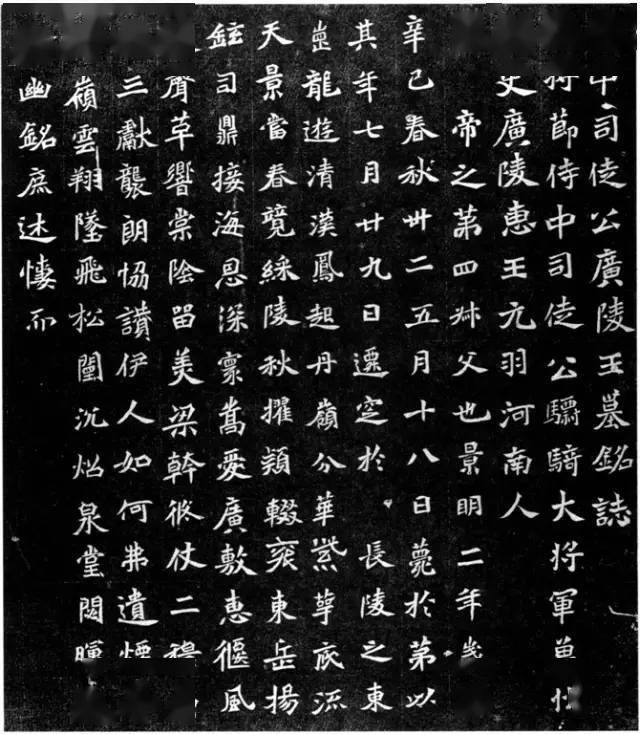 中司徒公廣陵王墓銘誌
持節侍中司徒公驃騎大將軍冀州
史廣陵惠王元羽河南人
帝之第四叔父也景明二年歲
辛巳春秋卅二五月十八日薨於第以
其年七月廿九日遷窆於長陵之東
崗龍遊清漢鳳起丹嶺分華紫萼底流
天景當春競綵陵秋擢穎輟袞東岳揚
鉉司鼎接海恩深寰嵩愛廣敷惠偃風
草響棠陰留美梁幹攸仗二穆
三獻襲朗協讚伊人如何弗遺煙
嶺雲翔墜飛松闈沉炤泉堂閟暉
幽銘庶述悽而